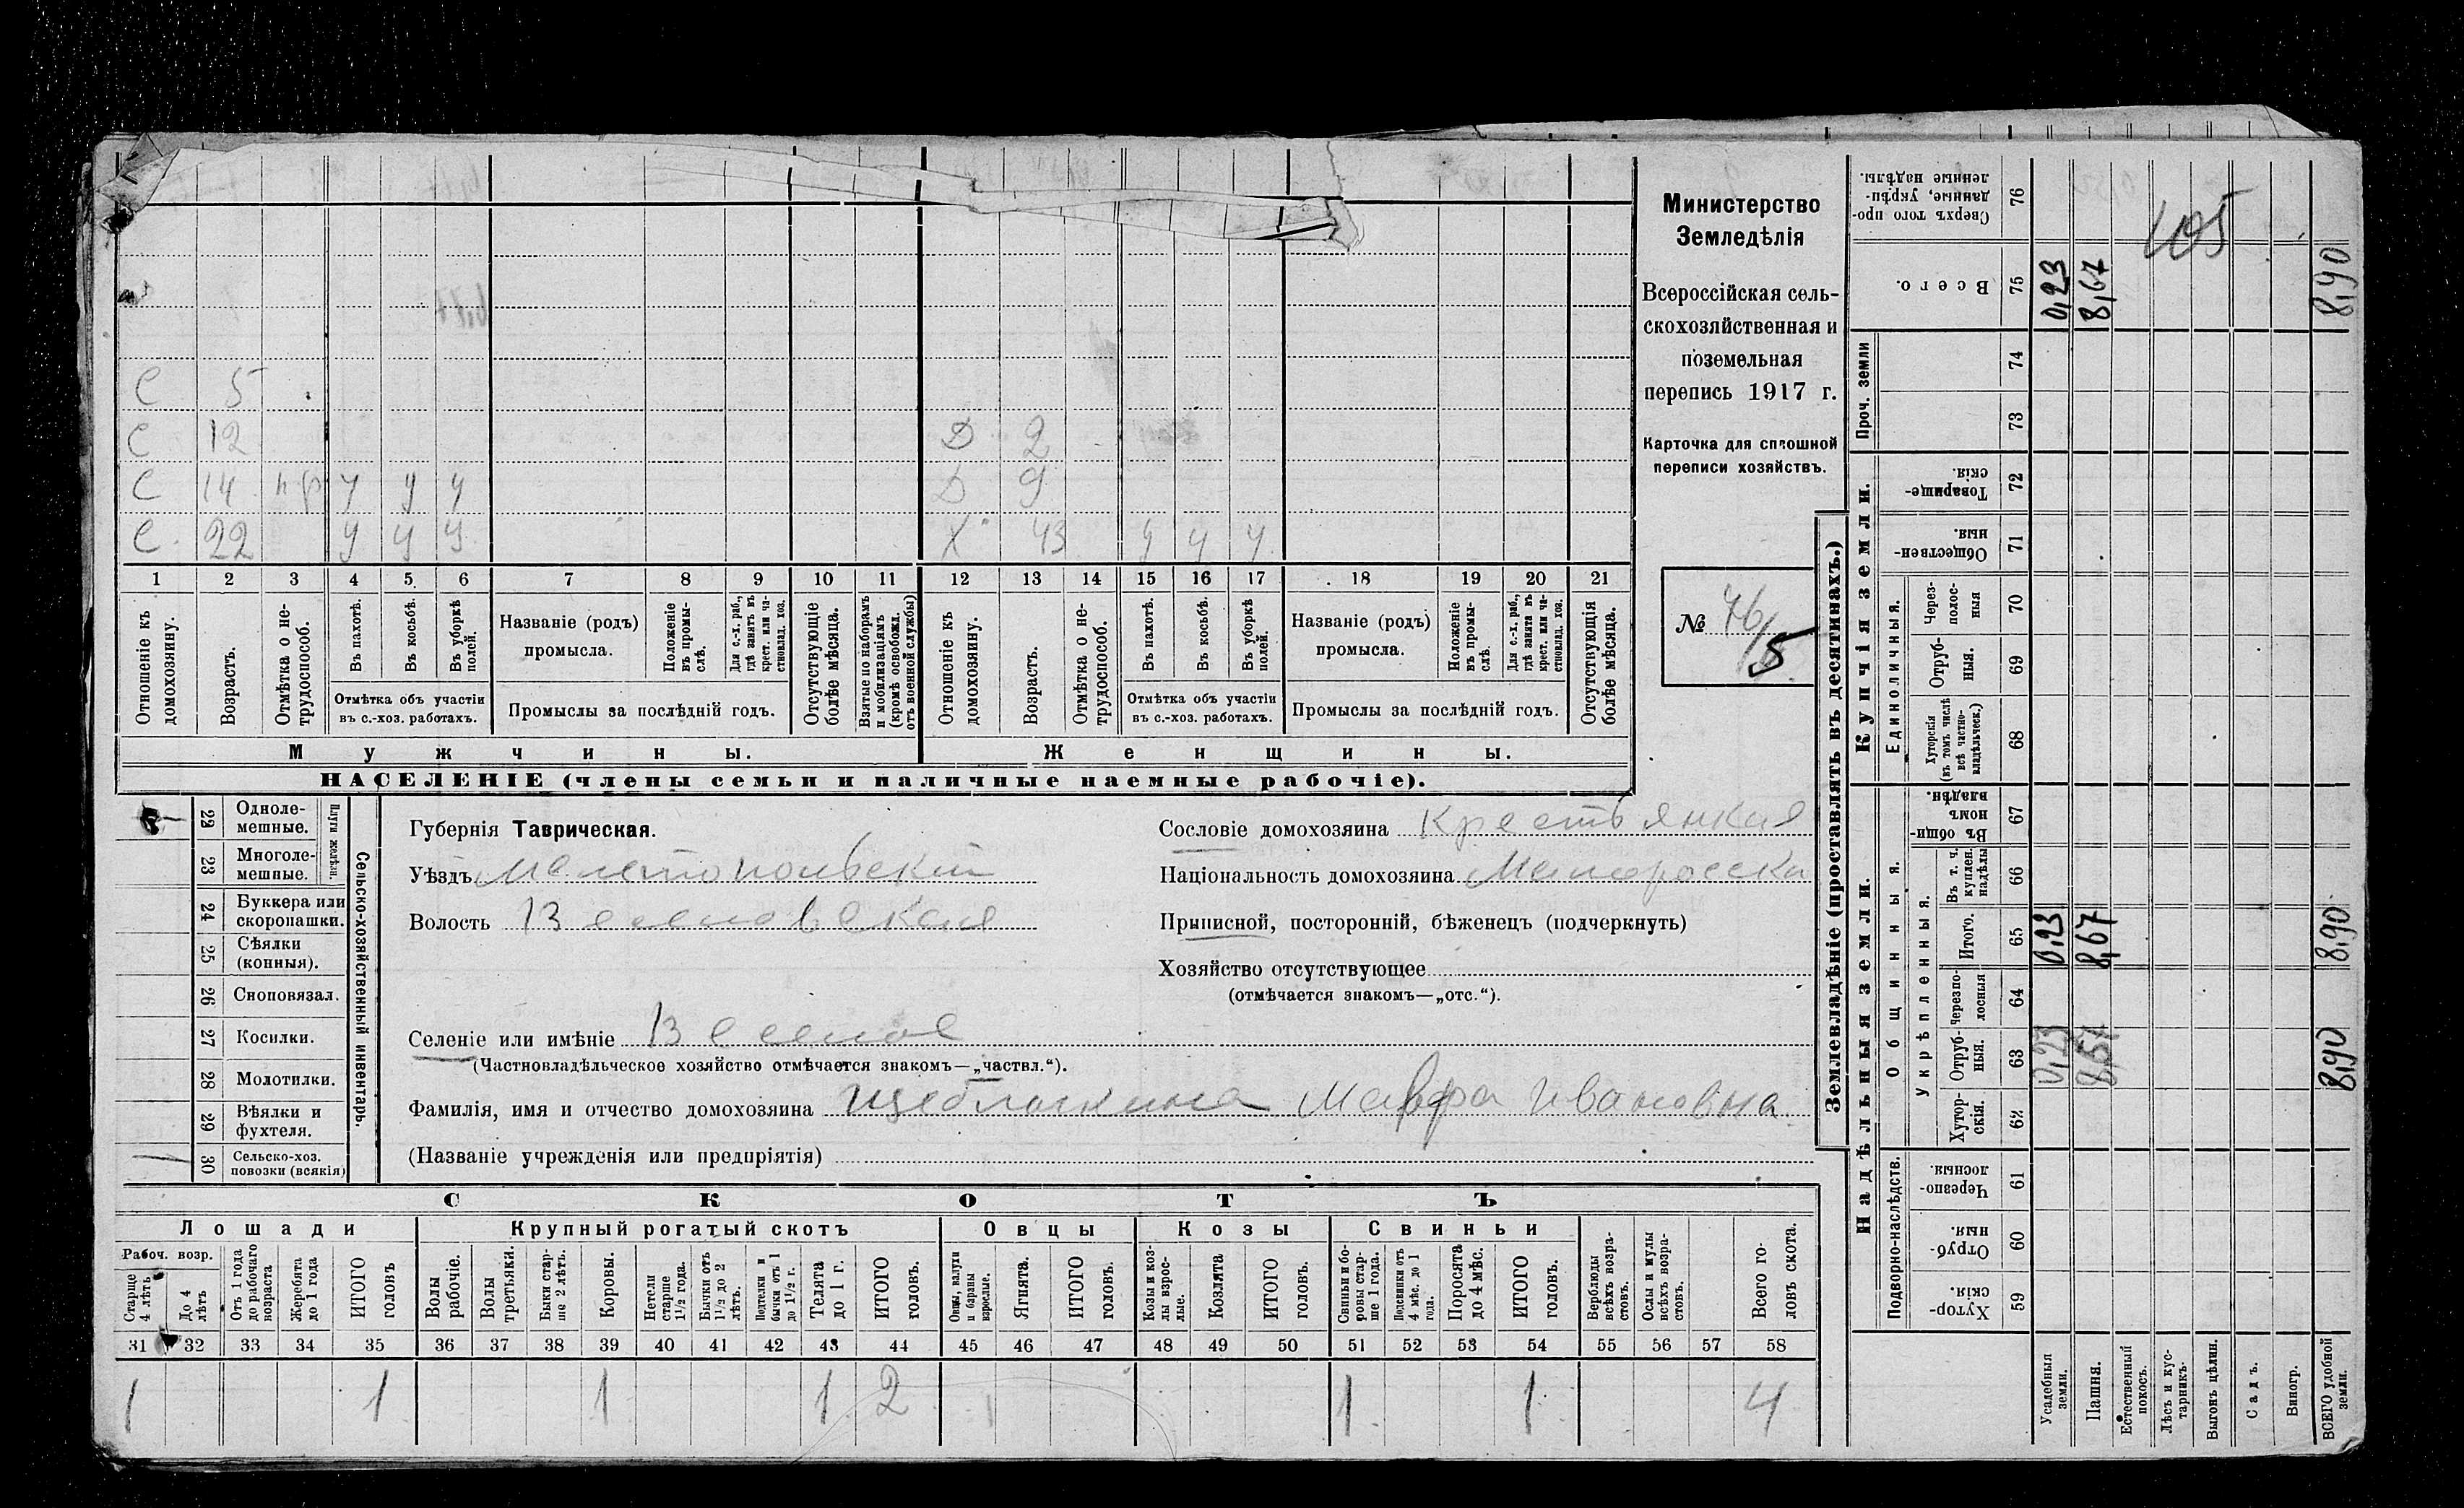 С 5
С 12 Д 2
С 14 нр у у у Д 9
С 22 у у у Х 43 у у у
1 2 3 4 5 6 7 8 9 10 11 12 13 14 15 16 17 18 19 20 21
Отношеніе къ домохозяину.
Возрастъ.
Отмѣтка о не-
трудоспособ.
Въ пахотѣ.
Въ косьбѣ.
Въ уборкѣ
полей.
Отмѣтка объ участіи
въ с.-хоз. работахъ.
Названіе (родъ)
промысла.
Положеніе
въ промы-
слѣ.
Для с.-х. раб.,
гдѣ занятъ въ
крест. или ча-
стновлад. хоз.
Промыслы за послѣдній годъ.
Отсутствующіе
болѣе мѣсяца.
Взятые по наборамъ
и мобилизаціямъ
(кромѣ освобожд.
отъ военной службы)
Отношеніе къ
домохозяину.
Возрастъ.
Отмѣтка о не-
трудоспособ.
Въ пахотѣ.
Въ косьбѣ.
Въ уборкѣ
полей.
Отмѣтка объ участіи
въ с.-хоз. работахъ.
Названіе (родъ)
промысла.
Положеніе
въ промы-
слѣ.
Для с.-х. раб.,
гдѣ занята въ
крест. или ча-
стновлад. хоз.
Промыслы за послѣдній годъ.
Отсутствующія
болѣе мѣсяца.
Мужчины. Женщины.
НАСЕЛЕНІЕ (члены семьи и наличные наемные рабочіе).
Министерство
Земледѣлія
Всероссійская сель-
скохозяйственная и
поземельная
перепись 1917 г.
Карточка для сплошной
переписи хозяйствъ.
№ 76/5
22 Одноле-
мешные.
23 Многоле-
мешные.
Плуги желѣзн.
24 Буккера или
скоропашки.
25 Сѣялки
(конныя).
26 Сноповязал.
27 Косилки.
28 Молотилки.
29 Вѣялки и
фухтеля.
30 Сельско-хоз.
повозки (всякія)
Сельско-хозяйственный инвентарь.
Губернія Таврическая.
Уѣздъ Мелитопольскій
Волость Веселовская
Селеніе или имѣніе Веселое
(Частновладѣльческое хозяйство отмѣчается знакомъ—„частвл.“).
Фамилія, имя и отчество домохозяина Щеблыкина Мавфра Ивановна
(Названіе учрежденія или предпріятія)
Сословіе домохозяина Крестьянкая
Національность домохозяина Малоросска
Приписной, посторонній, бѣженецъ (подчеркнуть)
Хозяйство отсутствующее
(отмѣчается знакомъ—„отс.“).
СКОТЪ
Лошади Крупный рогатый скотъ Овцы Козы Свиньи
Рабоч. возр.
Старше
4 лѣтъ
До 4
лѣтъ
Отъ 1 года
до рабочаго
возраста
Жеребята
до 1 года
ИТОГО
головъ
Волы
рабочіе.
Волы
третьяки.
Быки стар-
ше 2 лѣтъ.
Коровы.
Нетели
старше
1½ года.
Бычки отъ
1½ до 2
лѣтъ.
Подтелки и
бычки отъ 1
до 1½ г.
Телята
до 1 г.
ИТОГО
головъ.
Овцы, валухи
и бараны
взрослые.
Ягнята.
ИТОГО
головъ.
Козы и коз-
лы взрос-
лые.
Козлята
ИТОГО
головъ.
Свиньи и бо-
ровы стар-
ше 1 года.
Подсвинки отъ
4 мѣс. до 1
года.
Поросята
до 4 мѣс.
ИТОГО
головъ.
Верблюды
всѣхъ возра-
стовъ.
Ослы и мулы
всѣхъ возра-
стовъ.
Всего го-
ловъ скота.
31 32 33 34 35 36 37 38 39 40 41 42 43 44 45 46 47 48 49 50 51 52 53 54 55 56 57 58
1 1 1 1 2 1 1 4
Землевладѣніе (проставлять въ десятинахъ.)
Надѣльныя земли. Купчія земли. Проч. земли
Подворно-наслѣдств.
Общинныя.
Укрѣпленныя.
Единоличныя.
Сверхъ того про-
данные, укрѣп-
ленные надѣлы. 76
405
Всего. 75 0,23 8,67 8,90
74
73
Товарище-
скія. 72
Обществен-
ныя. 71
Через-
полос-
ныя 70
Отруб-
ныя. 69
Хуторскія
(въ томъ числѣ
всѣ частно-
владѣльческ.) 68
Въ общин-
номъ
владѣн. 67
Въ т. ч.
куплен.
надѣлы 66
Итого. 65 0,23 8,67 8,90
Черезпо-
лосныя 64
Отруб-
ныя. 63 0,23 8,67 8,90
Хутор-
скія. 62
Черезпо-
лосныя. 61
Отруб-
ныя. 60
Хутор-
скія. 59
Усадебныя
земли.
Пашня.
Естественный
покосъ.
Лѣсъ и кус-
тарникъ.
Выгонъ цѣлин.
Садъ.
Виногр.
ВСЕГО удобной
земли.